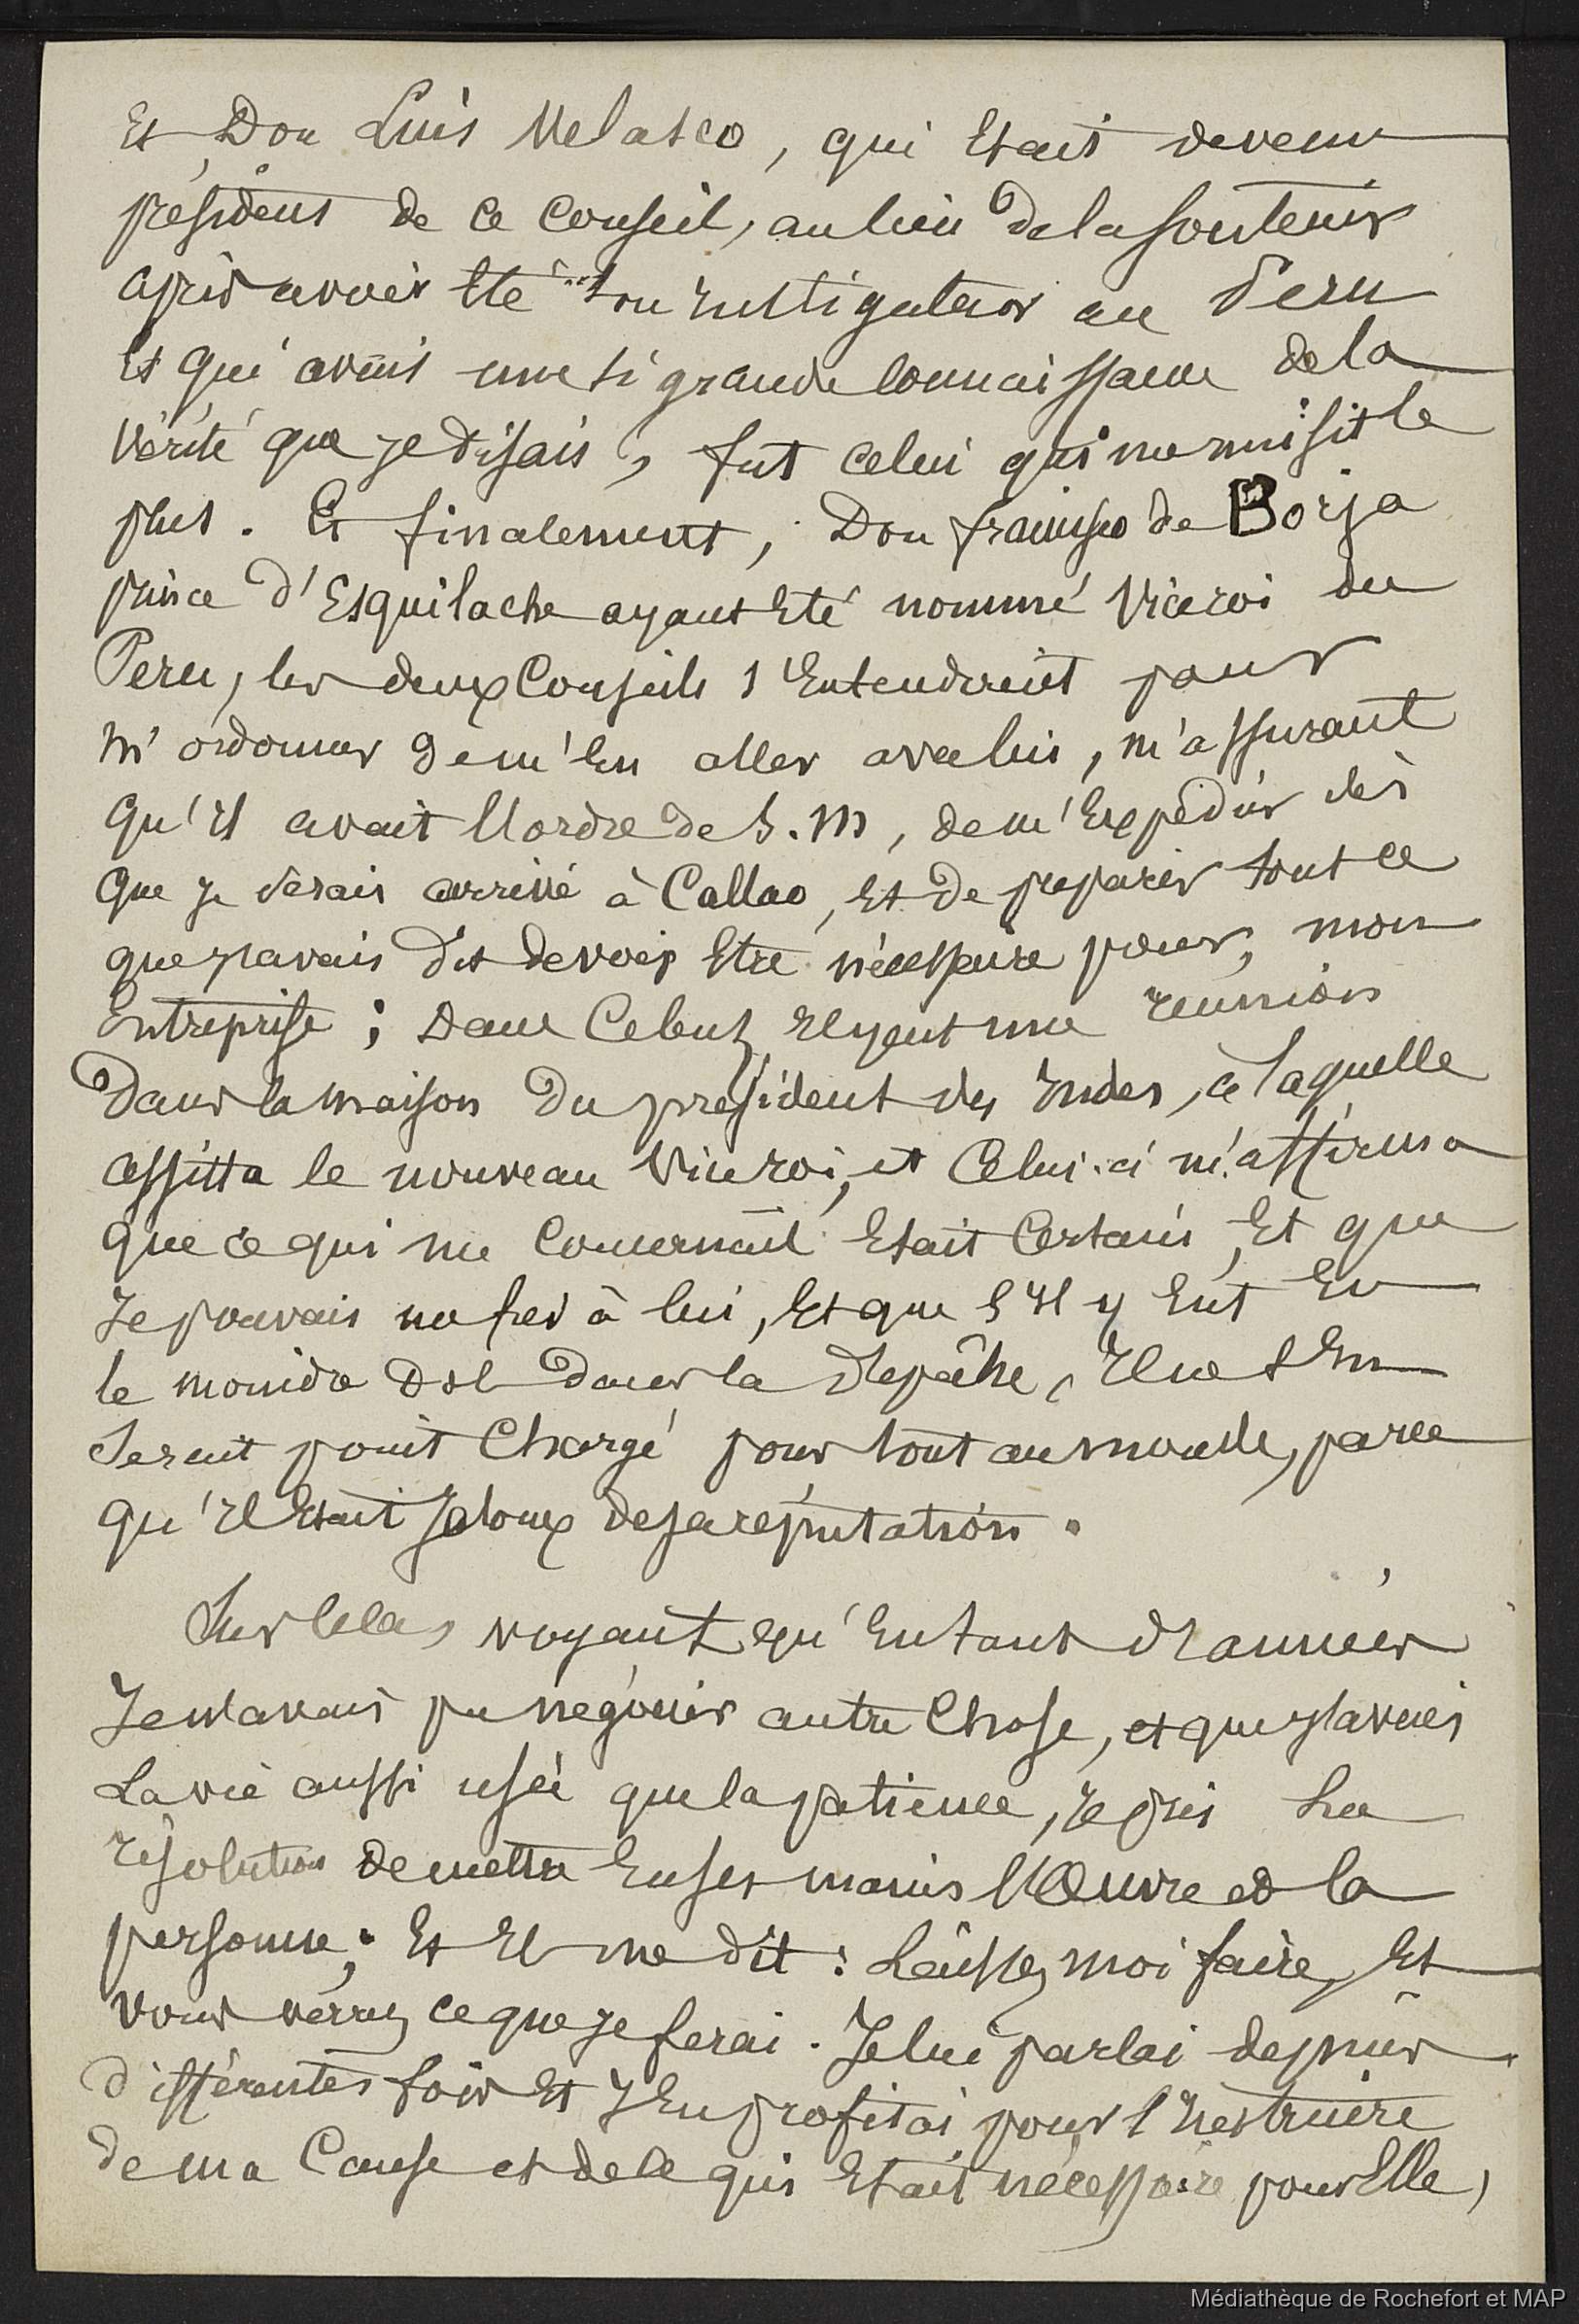 Et Don Luis Velasco, qui était devenu
président de ce conseil, au lieu de la soutenir
après avoir été son instigateur au Peru
et qui avait une si grande connaissance de la
vérité que je disais, fut celui qui me nuisit le
plus. Et finalement, Don francisco de Borja
prince d'Esquilache ayant été nommé Viceroi du
Peru, les deux Conseils s'entendirent pour
m'ordonner de m'en aller avec lui, m'assurant
qu'il avait l'ordre de S.M, de m'expédier dès
que je serais arrivé à Callao, et de preparer tout ce
que j'avais dit devoir être nécessaire pour, mon
Entreprise ; Dans ce but, il y eut une reunion
Dans la maison Du president des Indes, à laquelle
assista le nouveau Viceroi, et Celui-ci m'affirma
que ce qui me concernait était certain, Et que
Je pouvais me fier à lui, Et que s'il y eut eu
le moindre Dol dans la depêche, Il ne s'en
serait point Chargé pour tout au monde, parce
qu'il était Jaloux de sa réputation.
Sur cela, voyant qu'en tant d'années
Je n'avais pu négocier autre Chose, et que j'avais
La vie aussi usée que la patience, je pris la
résolution de mettre en ses mains l'Œuvre et la
personne ; Et Il me dit : Laissez moi faire, Et
vous verrez ce que je ferai. Je lui parlai depuis
différentes fois Et J'en profitai pour l'instruire
de ma Cause et de ce qui était nécessaire pour Elle,
Médiathèque de Rochefort et MAP